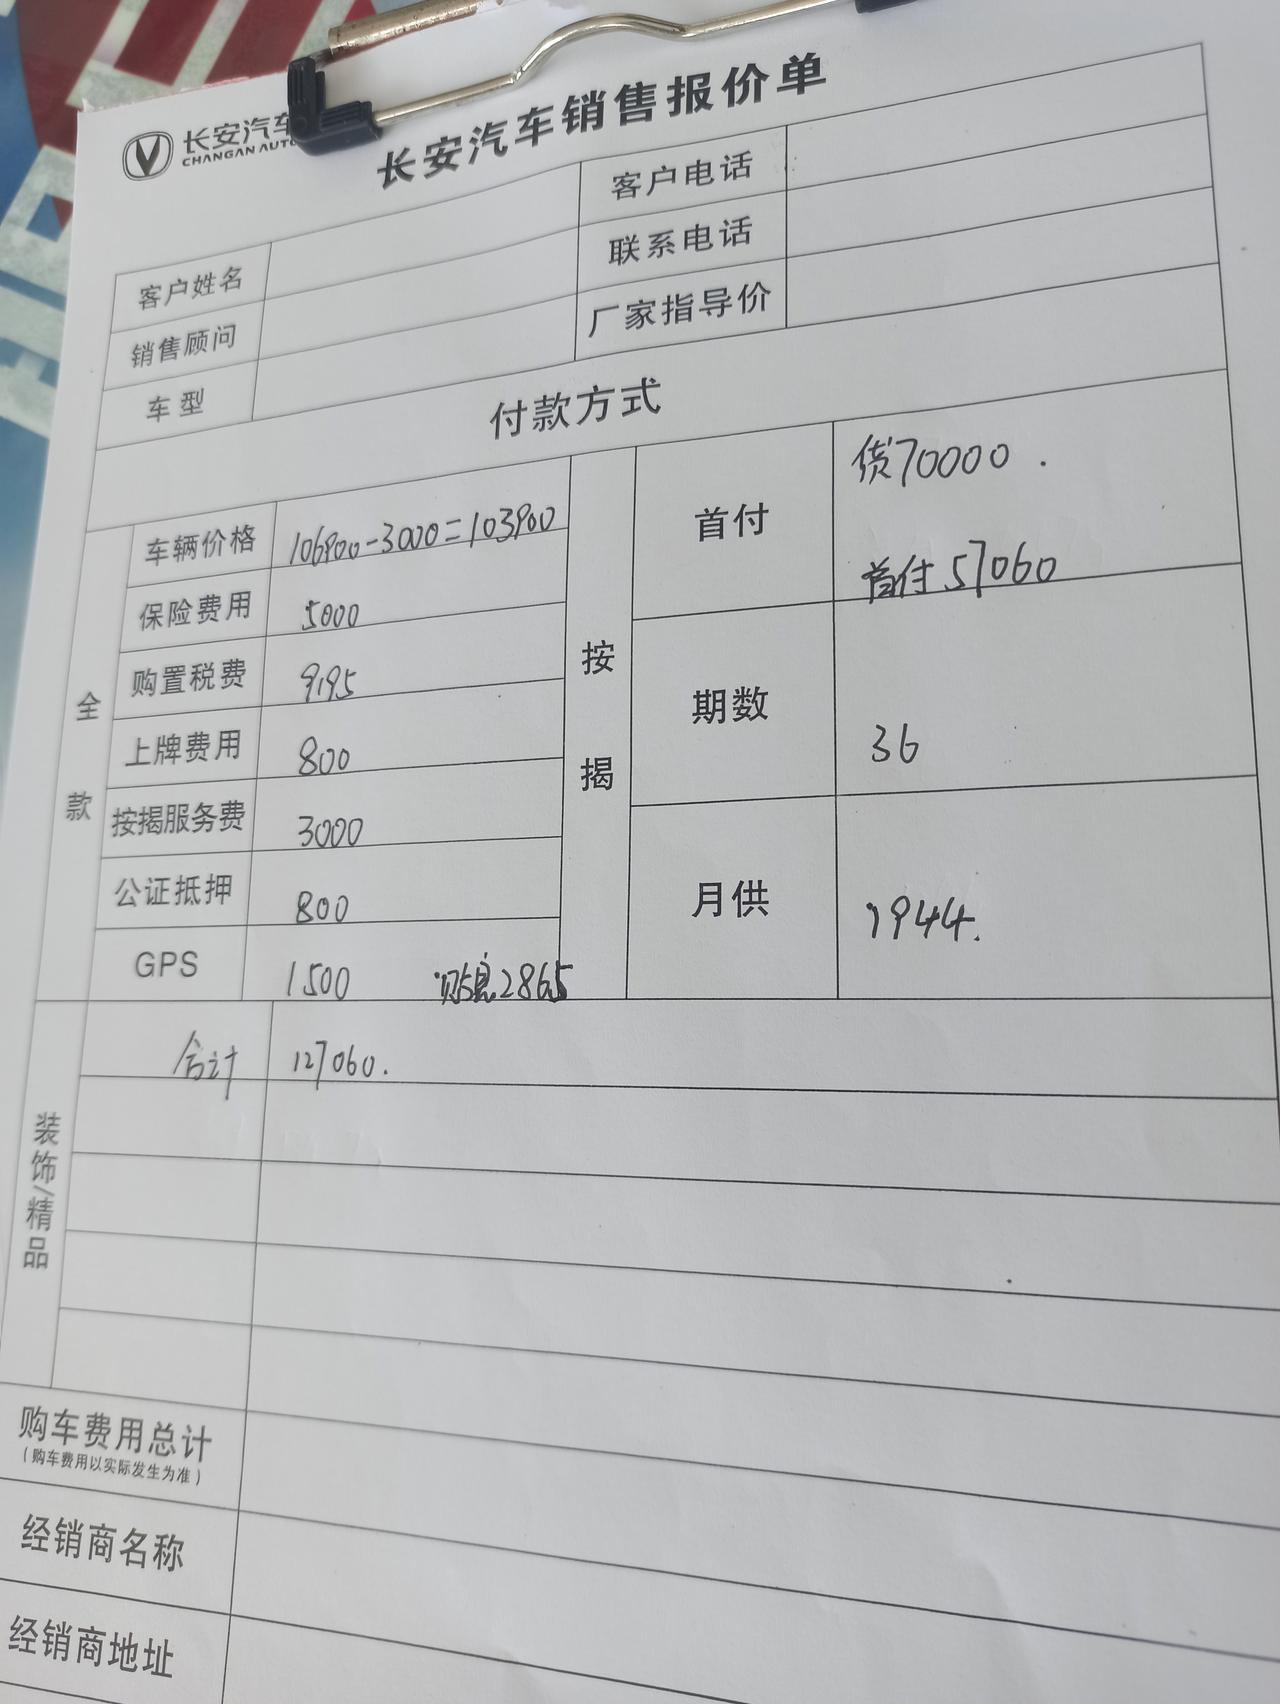 长安汽车
CHANGAN AUTO
长安汽车销售报价单
客户姓名
客户电话
销售顾问
联系电话
车型
厂家指导价
付款方式
全款
车辆价格 106900-3000=103900
保险费用 5000
购置税费 9195
上牌费用 800
按揭服务费 3000
公证抵押 800
GPS 1500 贴息2865
按揭
首付 贷70000.
首付57060
期数 36
月供 1944.
装饰/精品
合计 127060.
购车费用总计
(购车费用以实际发生为准)
经销商名称
经销商地址